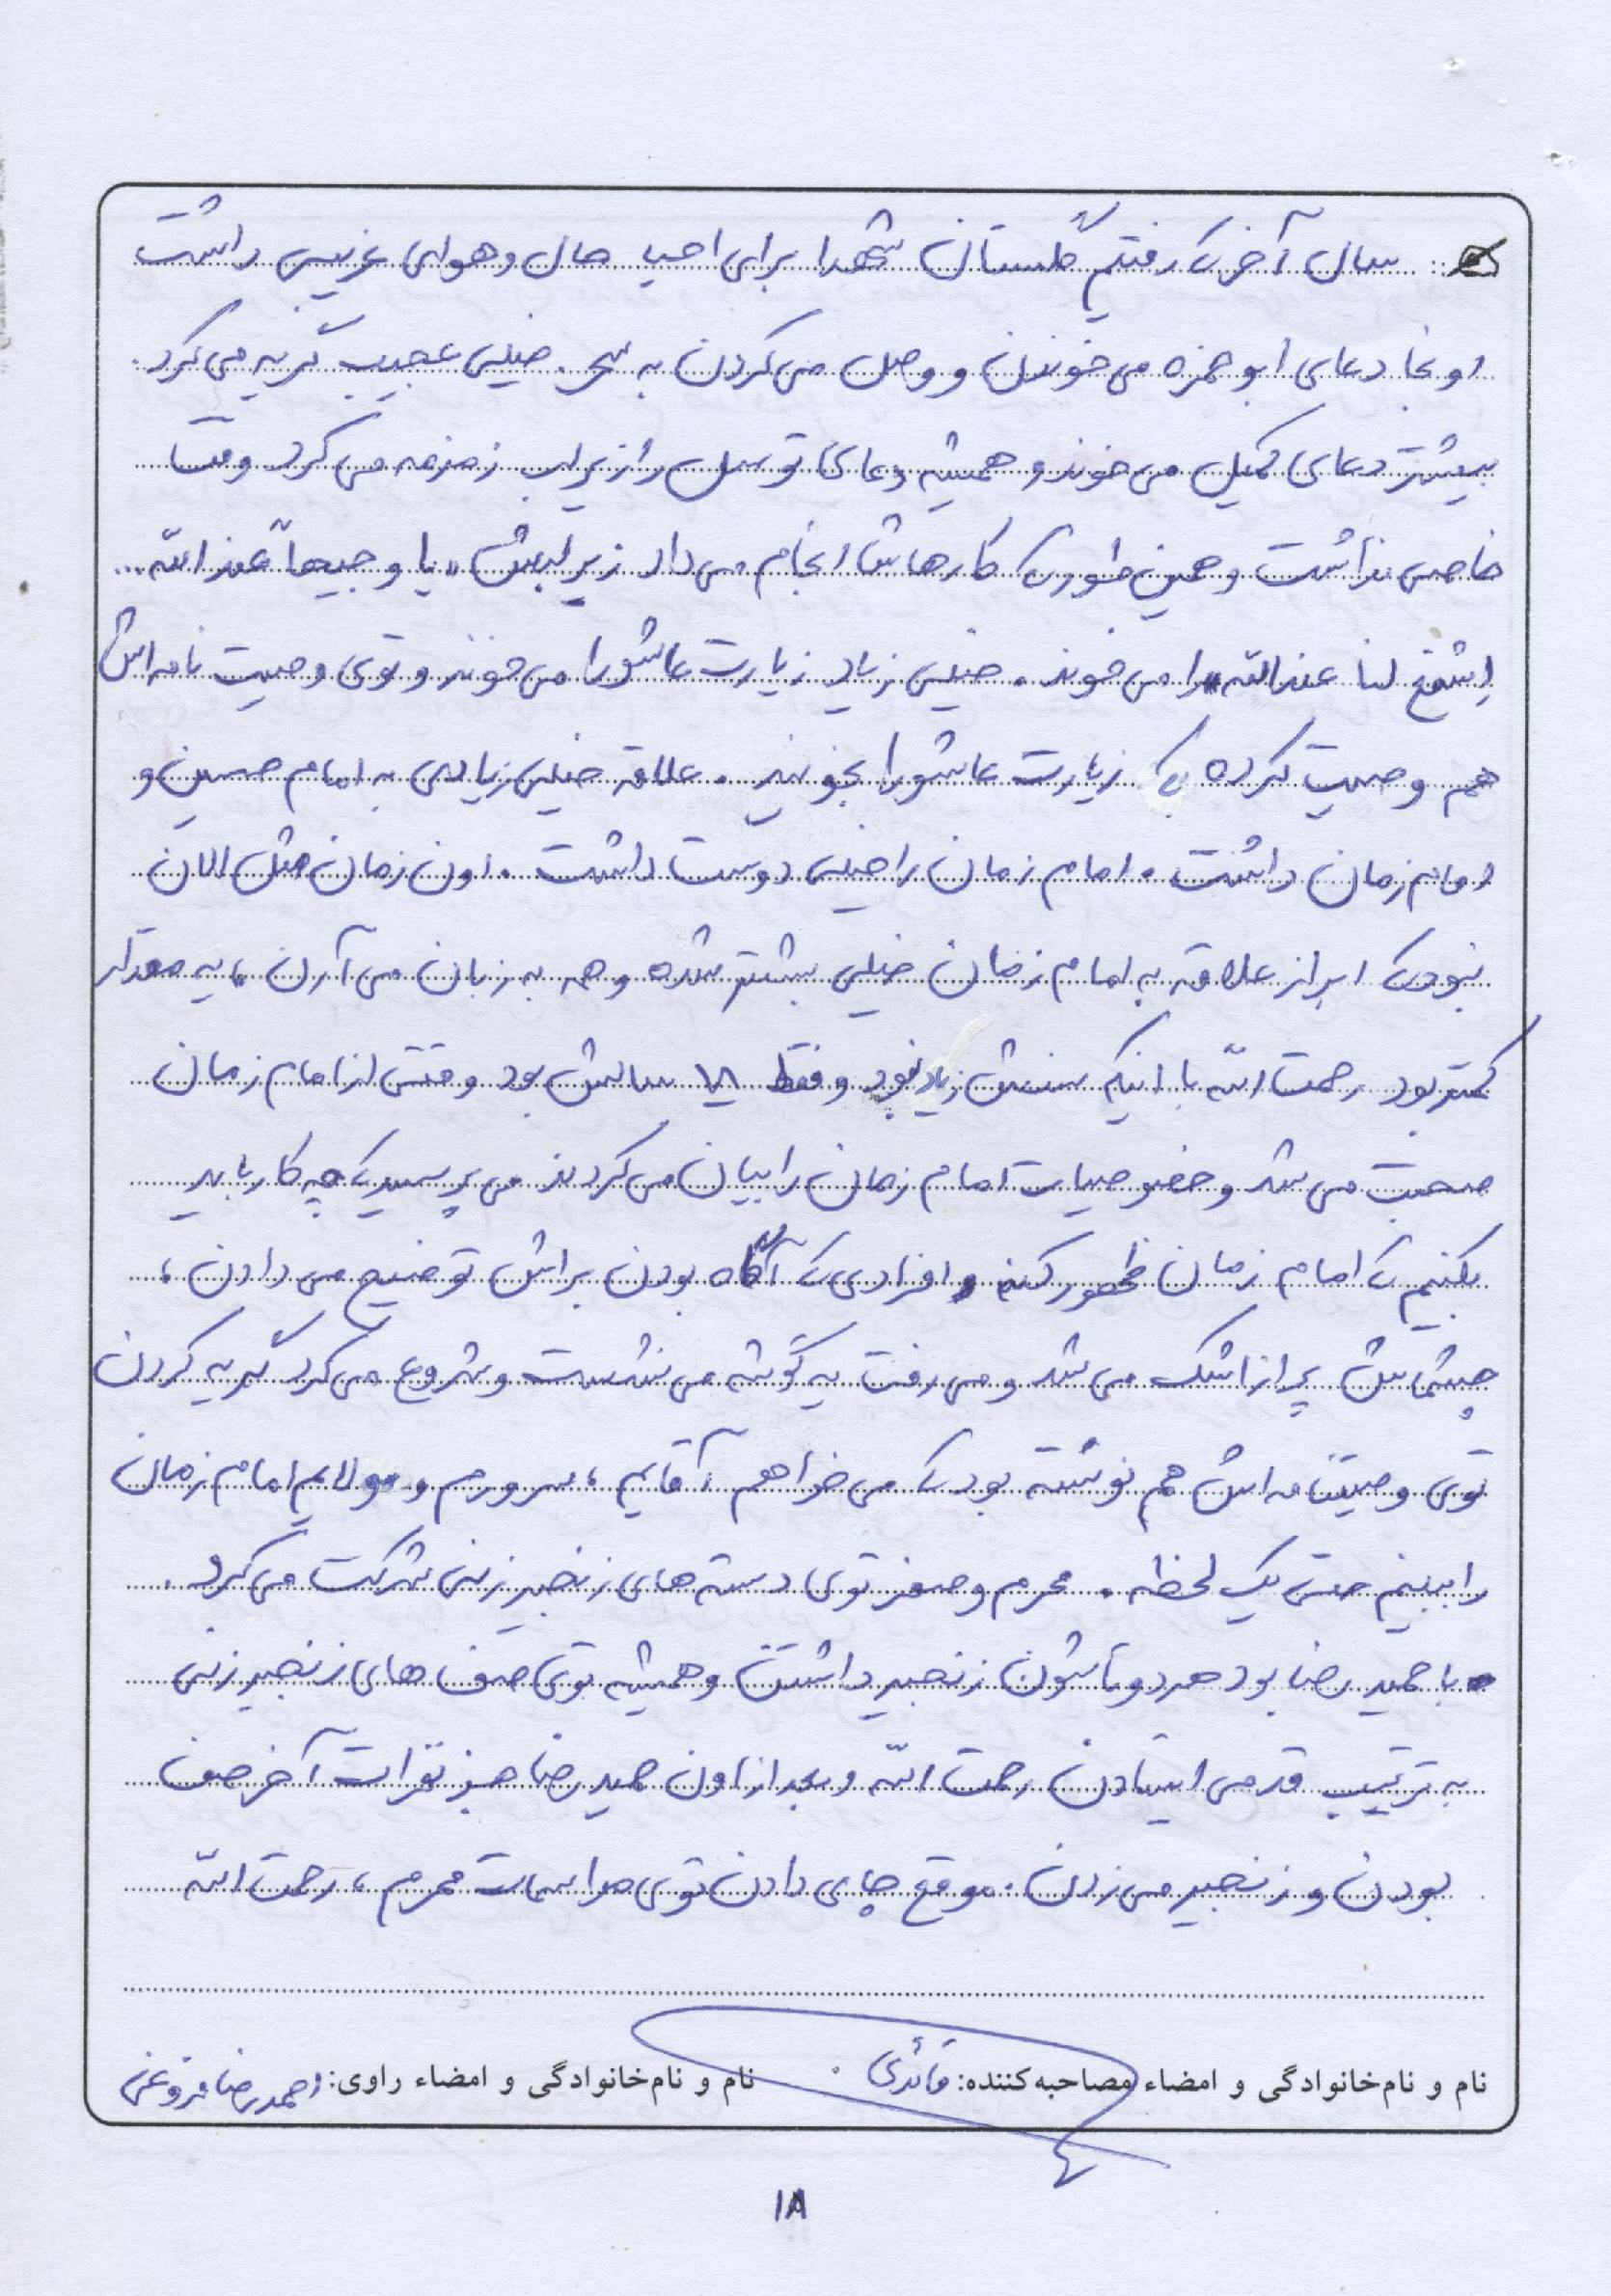 سال آخر که رفتیم گلستان شهدا برای احیا حال و هوای غریبی داشت
اونجا دعای ابوحمزه می خوندن و وصل می کردن به سحر. خیلی عجیب گریه می کرد.
بیشتر دعای کمیل می خوند و همیشه دعای توسل را زیر لب زمزمه می کرد وقت
خاصی نداشت و همین طور که کارهاش انجام می داد زیر لبش «یا وجیهاً عندالله...
اِشفع لنا عندالله» را می خوند. خیلی زیاد زیارت عاشورا می خوند و توی وصیت نامه اش
هم وصیت کرده که زیارت عاشورا بخونید. علاقه خیلی زیادی به امام حسین و
امام زمان داشت. امام زمان را خیلی دوست داشت. اون زمان مثل الان
نبود که ابراز علاقه به امام زمان خیلی بیشتر شده و همه به زبان می آرن، یه مقدار
کمتر بود رحمت الله با اینکه سنش زیاد نبود و فقط ۱۷ سالش بود وقتی از امام زمان
صحبت می شد و خصوصیات امام زمان را بیان می کردند می پرسید که چه کار باید
بکنیم که امام زمان ظهور کنه و افرادی که آگاه بودن براش توضیح می دادن،
چشماش پر از اشک می شد و می رفت یه گوشه می نشست و شروع می کرد گریه کردن
توی وصیتنامه اش هم نوشته بود که می خواهم آقایم، سرورم و مولایم امام زمان
را ببینم حتی یک لحظه. محرم و صفر توی دسته های زنجیرزنی شرکت می کرد.
با حمیدرضا بود هر دوتاشون زنجیر داشتن و همیشه توی صف های زنجیرزنی
به ترتیب قد می ایستادن رحمت الله و بعد از اون حمیدرضا جز نفرات آخر صف
بودن و زنجیر می زدن. موقع چای دادن توی مراسمات محرم، رحمت الله
نام و نام‌خانوادگی و امضاء مصاحبه‌کننده: قائدی نام و نام‌خانوادگی و امضاء راوی: احمدرضا فروغی
۱۸